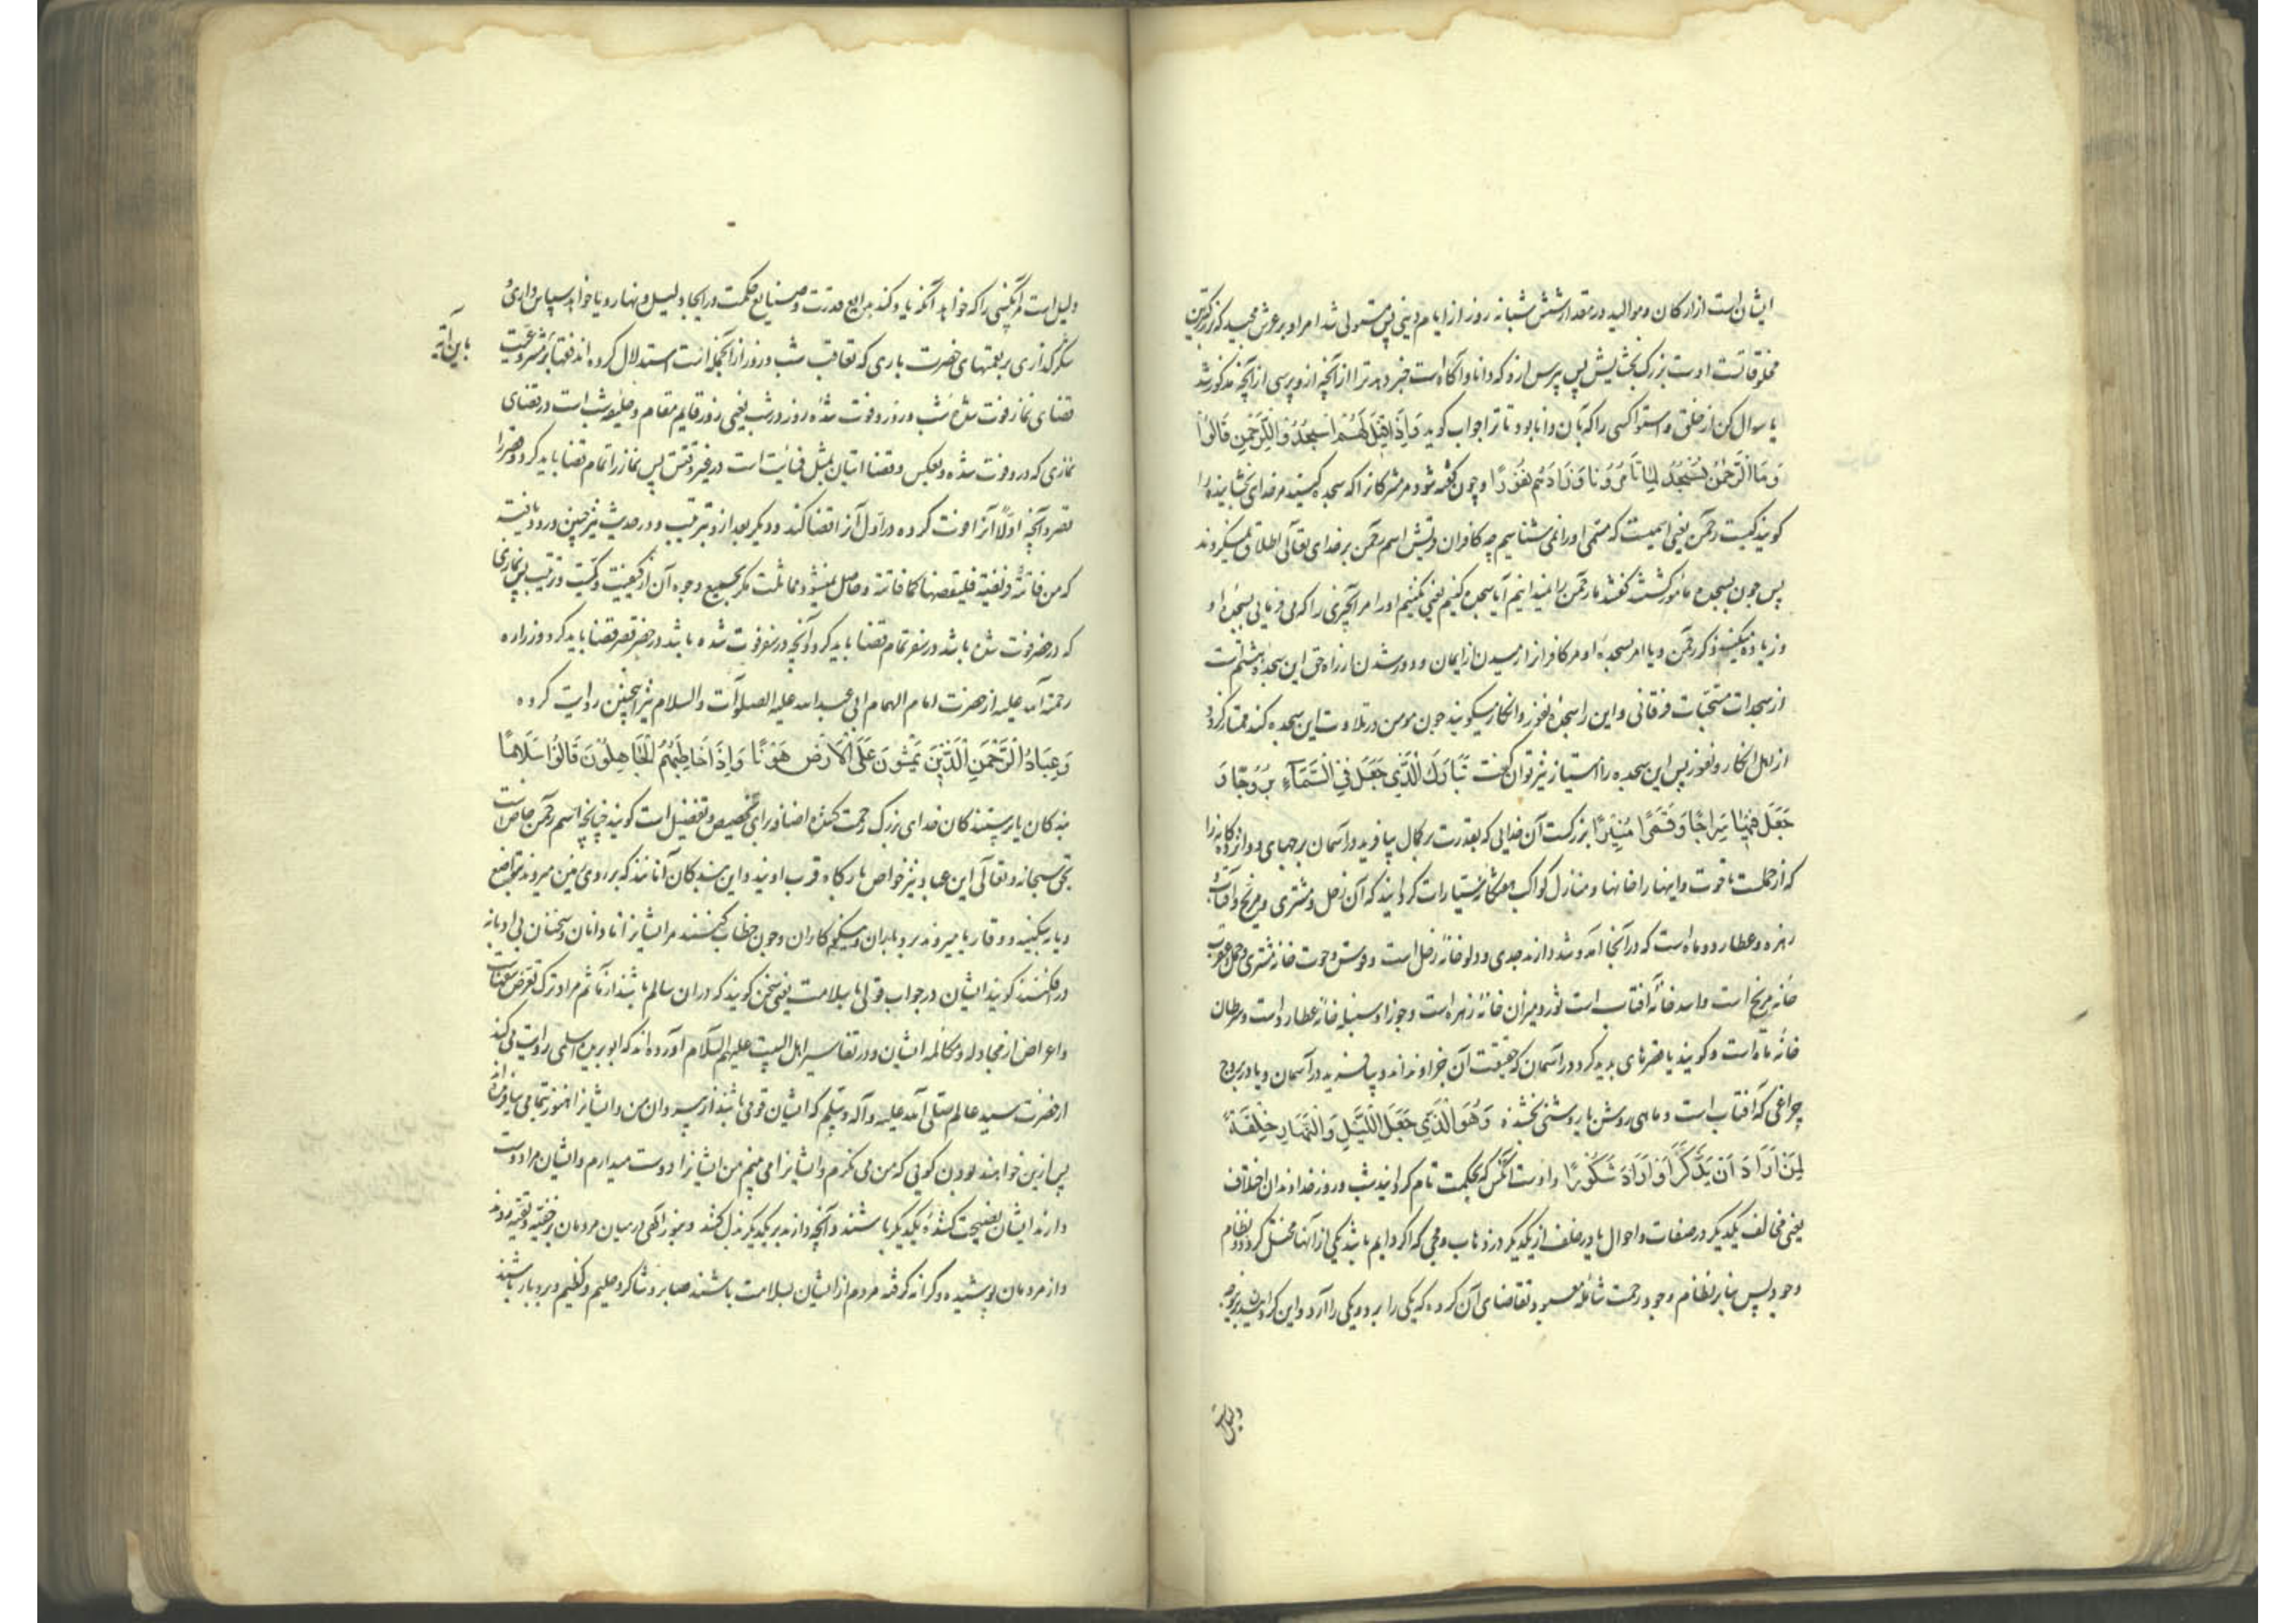 ایشان است از ارکان و موالید در مقدار شش شبانه روز از ایام دینی پس مستولی شد امر او بر عرش مجید که بزرکترین
مخلوقاتست اوست بزرک بخشایش پس بپرس ازو که دانا و آکاه است خبر دهد ترا از آنچه ازو پرسی از آنچه مذکور شد
یا سوال کن از خلق و استوا کسی را که بآن دانا بود تا ترا جواب کوید وَاِذَا قِیلَ لَهُمُ اسْجُدُوا لِلرَّحْمٰنِ قَالُوْا
وَمَا الرَّحْمٰنُ اَنَسْجُدُ لِمَا تَأْمُرُنَا وَزَادَهُمْ نُفُوْرًا و چون کفته شود مر مشرکانرا که سجده کنید مر خدای بخشاینده را
کویند کیست رحمن یعنی اسمیست که مسمی او را نمی شناسیم چه کافران قریش اسم رحمن بر خدای تعالی اطلاق نمیکردند
پس چون بسجده مأمور کشتند کفتند ما رحمن را نمیدانیم آیا سجده کنیم یعنی نکنیم او را مر آنچیزی را که می فرمایی بسجدهٔ او
و زیاده میکند ذکر رحمن و یا امر بسجدهٔ او مر کافرانرا رمیدن از ایمان و دور شدن از راه حق این سجدهٔ هشتم است
از سجدات مستحبات فرقانی و این را سجدهٔ نفور و انکار میکویند چون مومن در تلاوت این سجده کند ممتاز کردد
از اهل انکار و نفور پس این سجده را امتیاز نیز توان کفت تَبَارَكَ الَّذِي جَعَلَ فِي السَّمَآءِ بُرُوْجًا وَ
جَعَلَ فِيْهَا سِرَاجًا وَقَمَرًا مُنِيْرًا بزرکست آن خدایی که بقدرت بر کمال بیافرید در آسمان برجهای دوازده کانه را
که از حملست تا حوت و اینها را خانها و منازل کواکب هفتکانهٔ سیارات کردانید که آن زحل و مشتری و مریخ و آفتاب
زهره و عطارد و ماه است که در آنجا آمد و شد دارند جدی و دلو خانهٔ زحل است و قوس و حوت خانهٔ مشتری و حمل و عقرب
خانهٔ مریخ است و اسد خانهٔ افتاب است ثور و میزان خانهٔ زهره است و جوزا و سنبله خانهٔ عطارد است و سرطان
خانهٔ ماه است و کویند یا قصرهای پدید کرد در آسمان که حقیقت آن جز او نداند و بیافرید در آسمان و یا در بروج
چراغی که آفتاب است و ماهی روشن یا روشنی بخشنده وَهُوَ الَّذِي جَعَلَ اللَّيْلَ وَالنَّهَارَ خِلْفَةً
لِمَنْ اَرَادَ اَنْ يَذَّكَّرَ اَوْ اَرَادَ شُكُوْرًا و اوست آنکس که بحکمت تام کردانید شب و روز خداوندان اختلاف
یعنی مخالف یکدیکر در صفات و احوال یا در خلف از یکدیکر در ذهاب و مجی که اکر دایم باشد یکی از آنها مختل کردد نظام
وجود پس بنابر نظام وجود رحمت شاملهٔ معبود تقاضای آن کرده که یکی را برد و یکی را آرد و این کردانیدن
دلیل است
دلیل است مر آنکسی را که خواهد آنکه یاد کند بدایع قدرت و صنایع حکمت در ایجاد لیل و نهار و یا خواهد سپاس داری و
شکر کذاری بر نعمتهای حضرت باری که تعاقب شب و روز از آنجمله است استدلال کرده اند فقها بر مشروعیت
باین آیه
قضای نماز فوت شدهٔ شب در روز و فوت شدهٔ روز در شب یعنی روز قایم مقام و خلیفهٔ شب است در قضای
نمازی که درو فوت شده و بعکس و قضا اتیان بمثل فائت است در غیر وقتش پس نماز را تمام قضا باید کرد و قصر را
قصر و آنچه اولا آنرا فوت کرده در اول آنرا قضا کند و دیکر بعد ازو بترتیب و در حدیث نیز چنین ورود یافته
که من فاتته فریضة فلیقضها کما فاتته و حاصل نمیشود مماثلت مکر بجمیع وجوه آن از کیفیت و کمیت و ترتیب پس نمازی
که در حضر فوت شده باشد در سفر تمام قضا باید کرد و آنچه در سفر فوت شده باشد در حضر قصر قضا باید کرد و زراره
رحمة الله علیه از حضرت امام الهمام ابی عبد الله علیه الصلوات والسلام نیز اینچنین روایت کرده
وَعِبَادُ الرَّحْمٰنِ الَّذِيْنَ يَمْشُوْنَ عَلَى الْاَرْضِ هَوْنًا وَاِذَا خَاطَبَهُمُ الْجَاهِلُوْنَ قَالُوْا سَلَامًا
بندکان یا پرستندکان خدای بزرک رحمت کننده اضافه برای تخصیص و تفضیل است کویند چنانچه اسم رحمن خاص است
بحق سبحانه و تعالی این عباد نیز خواص بارکاه قرب اویند و این بندکان آنانند که بر روی زمین میروند بتواضع
و یا بسکینه و وقار یا میروند بردباران و نیکوکاران و چون خطاب کنند مر ایشانرا نادانان و سخنان بی ادبانه
در افکنند کویند ایشان در جواب قولی با سلامت یعنی سخن کویند که در آن سالم باشند از مآثم مراد ترک تعرض سفهاست
و اعراض از مجادله و مکالمهٔ ایشان و در تفاسیر اهل البیت علیهم السلام آورده اند که ابو بریدهٔ اسلمی روایت می کند
از حضرت سید عالم صلی الله علیه و آله و سلم که ایشان قومی باشند از پیروان من و ایشانرا هنوز
پس ازین خواهند بودن کویی که من می نکرم و ایشانرا می بینم من ایشانرا دوست میدارم و ایشان مرا دوست
دارند ایشان نصیحت کنندهٔ یکدیکر باشند و آنچه دارند بر یکدیکر بذل کنند و بنور الهی در میان مردمان بر خفیه و تقیه روند
و از مردمان پوشیده و کرانه کرفته مردم از ایشان بسلامت باشند صابر و شاکر و حلیم و کظیم و بردبار باشند